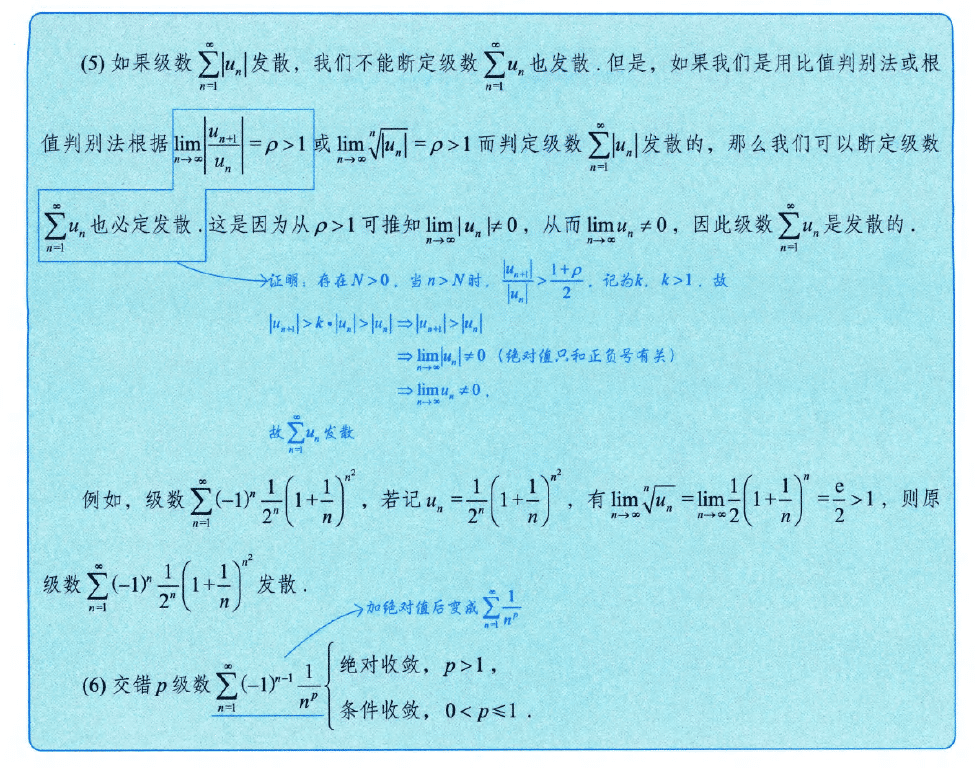 (5) 如果级数 $\sum_{n=1}^{\infty}|u_n|$ 发散，我们不能断定级数 $\sum_{n=1}^{\infty}u_n$ 也发散．但是，如果我们是用比值判别法或根
值判别法根据 $\lim_{n\to\infty}\left|\frac{u_{n+1}}{u_n}\right|=\rho>1$ 或 $\lim_{n\to\infty}\sqrt[n]{|u_n|}=\rho>1$ 而判定级数 $\sum_{n=1}^{\infty}|u_n|$ 发散的，那么我们可以断定级数
$\sum_{n=1}^{\infty}u_n$ 也必定发散．这是因为从 $\rho>1$ 可推知 $\lim_{n\to\infty}|u_n|\neq 0$，从而 $\lim_{n\to\infty}u_n\neq 0$，因此级数 $\sum_{n=1}^{\infty}u_n$ 是发散的．
证明：存在 $N>0$．当 $n>N$ 时．$\frac{|u_{n+1}|}{|u_n|}>\frac{1+\rho}{2}$．记为k．$k>1$．故
$|u_{n+1}|>k\bullet|u_n|>|u_n|\Rightarrow|u_{n+1}|>|u_n|$
$\Rightarrow\lim_{n\to\infty}|u_n|\neq 0$（绝对值只和正负号有关）
$\Rightarrow\lim_{n\to\infty}u_n\neq 0$．
故 $\sum_{n=1}^{\infty}u_n$ 发散
例如，级数 $\sum_{n=1}^{\infty}(-1)^n\frac{1}{2^n}\left(1+\frac{1}{n}\right)^{n^2}$，若记 $u_n=\frac{1}{2^n}\left(1+\frac{1}{n}\right)^{n^2}$，有 $\lim_{n\to\infty}\sqrt[n]{u_n}=\lim_{n\to\infty}\frac{1}{2}\left(1+\frac{1}{n}\right)^n=\frac{e}{2}>1$，则原
级数 $\sum_{n=1}^{\infty}(-1)^n\frac{1}{2^n}\left(1+\frac{1}{n}\right)^{n^2}$ 发散．
加绝对值后变成 $\sum_{n=1}^{\infty}\frac{1}{n^p}$
(6) 交错 $p$ 级数 $\sum_{n=1}^{\infty}(-1)^{n-1}\frac{1}{n^p}$ { 绝对收敛，$p>1$，
条件收敛，$0<p\leqslant 1$．